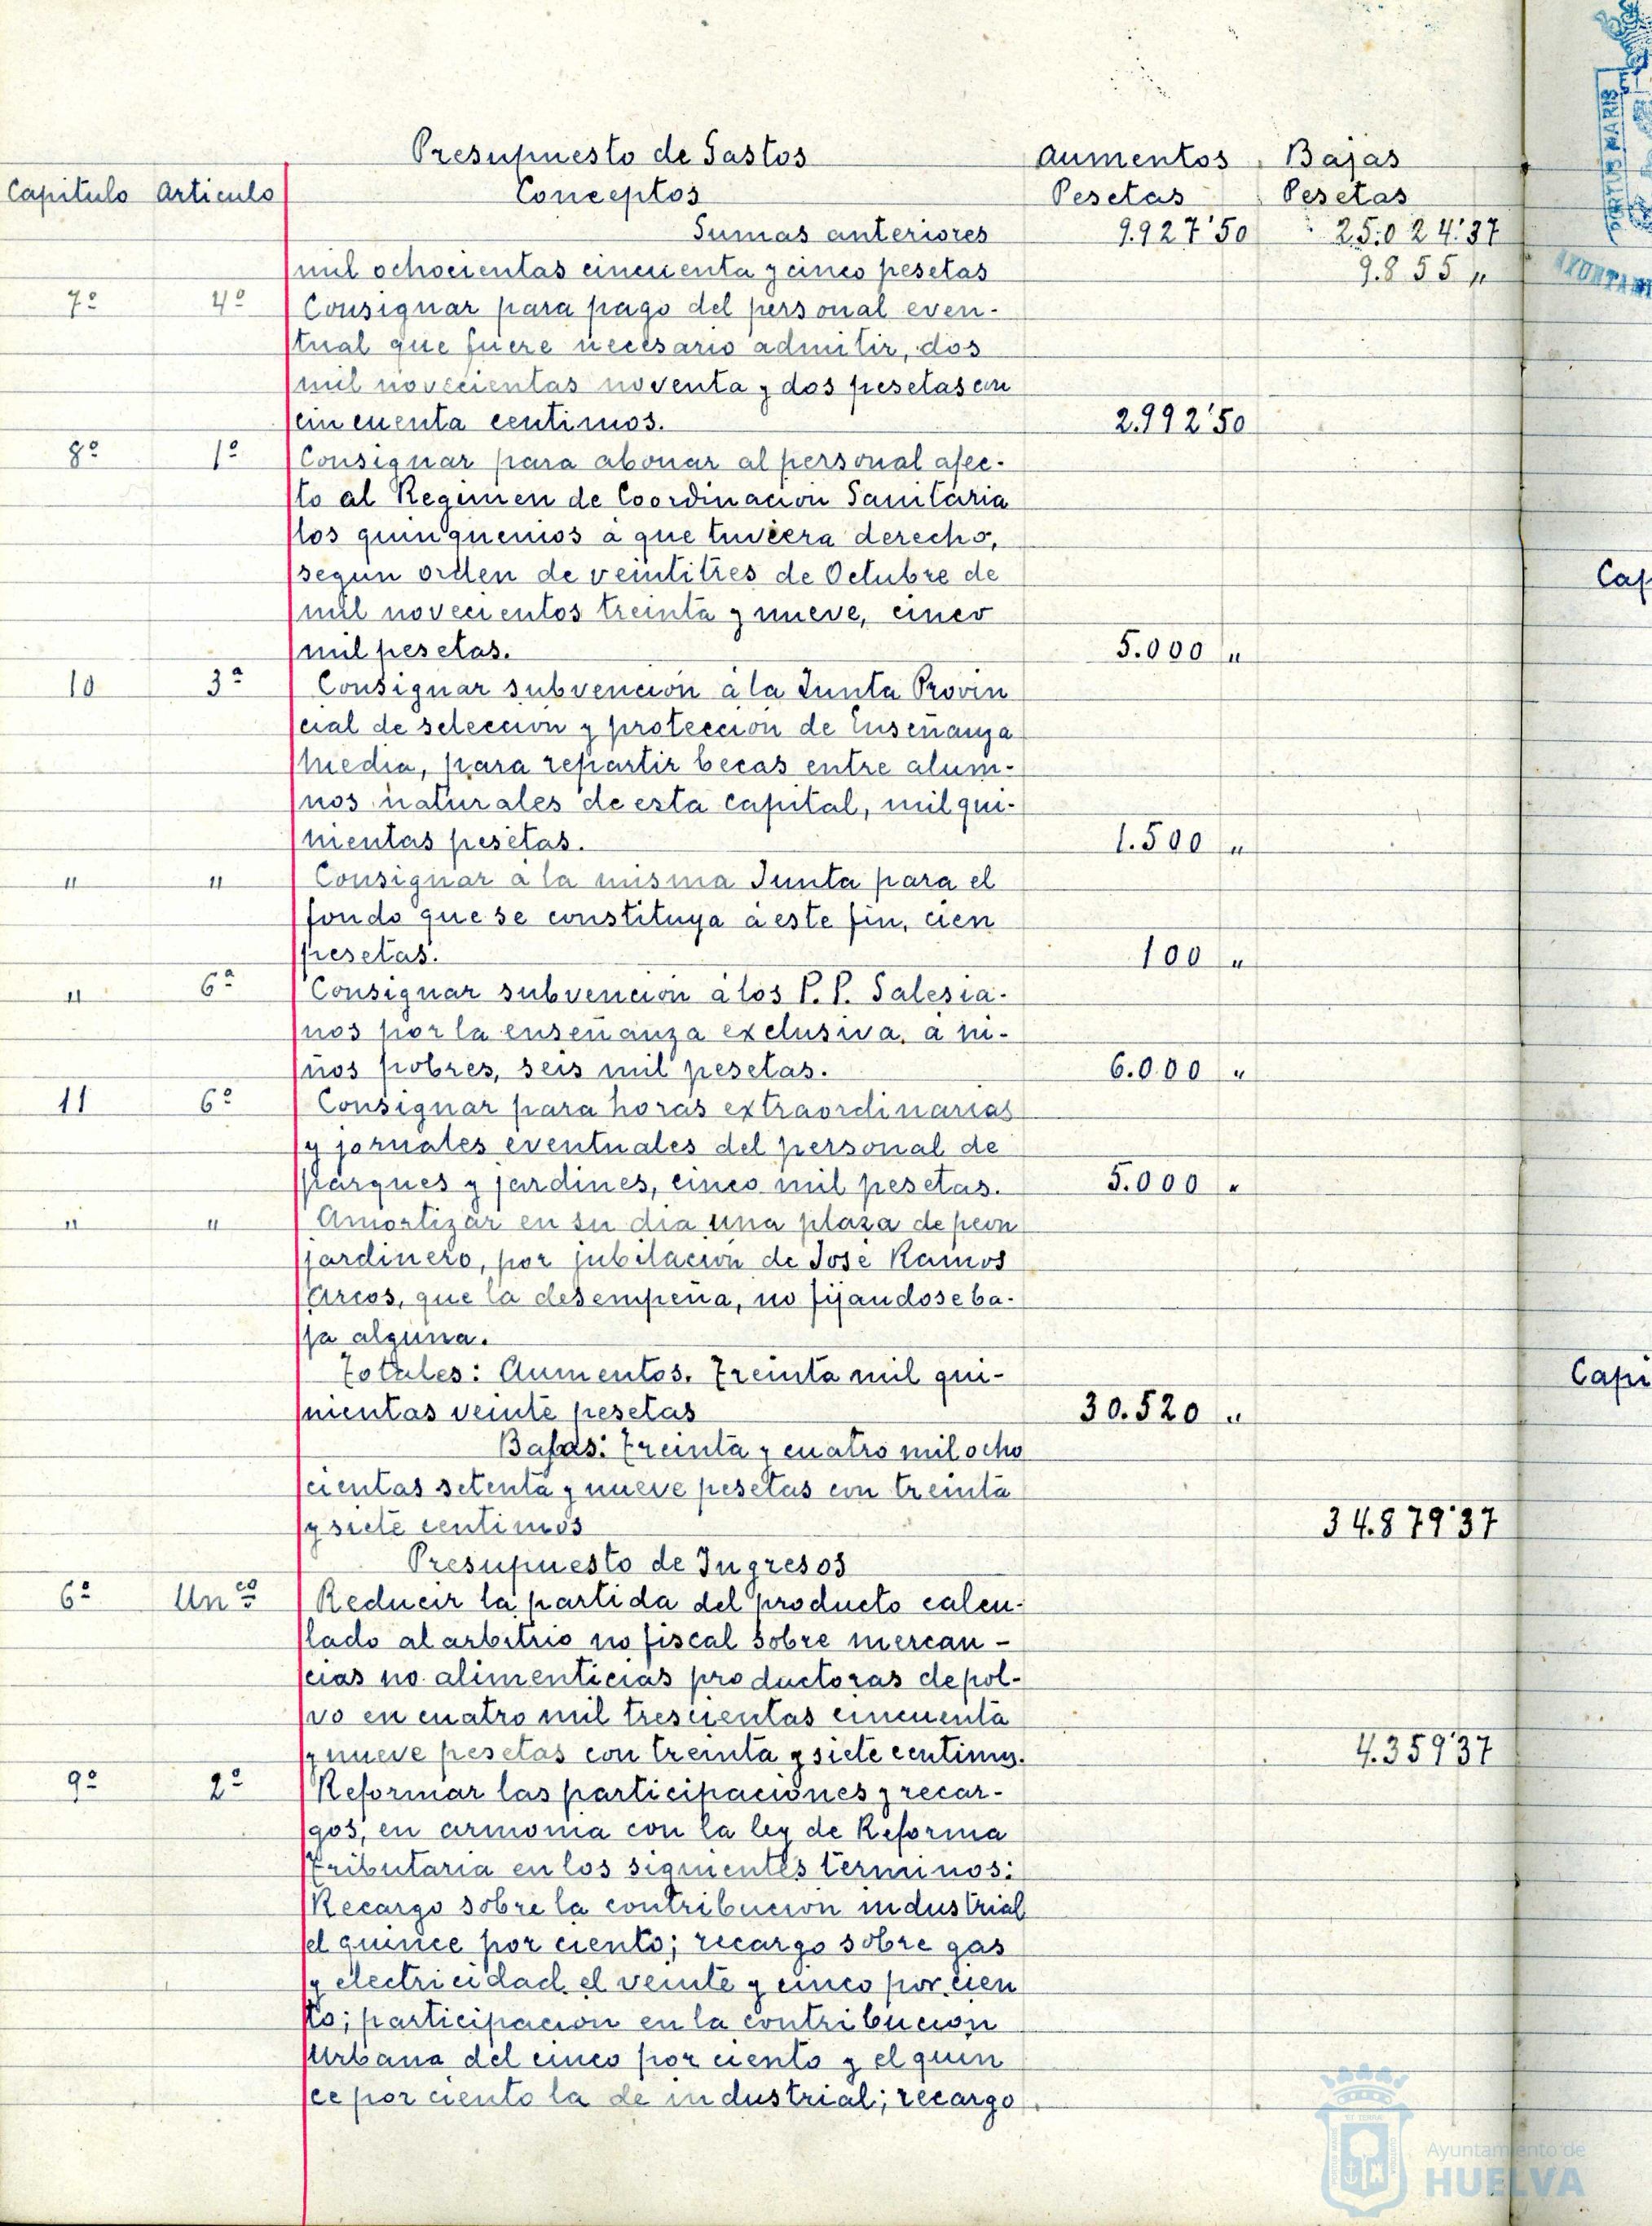 Presupuesto de Gastos Aumentos Bajas
Capitulo Articulo Conceptos Pesetas Pesetas
Sumas anteriores 9.927'50 25.024'37
mil ochocientas cincuenta y cinco pesetas 9.855 "
7º 4º Consignar para pago del personal even-
tual que fuere necesario admitir, dos
mil novecientas noventa y dos pesetas con
cincuenta centimos. 2.992'50
8º 1º Consignar para abonar al personal afec-
to al Regimen de Coordinacion Sanitaria
los quinquenios a que tuviera derecho,
segun orden de veintitres de Octubre de
mil novecientos treinta y nueve, cinco
mil pesetas. 5.000 "
10 3º Consignar subvención á la Junta Provin
cial de seleccion y protección de Enseñanza
Media, para repartir becas entre alum-
nos naturales de esta capital, mil qui-
nientas pesetas. 1.500 "
" " Consignar á la misma Junta para el
fondo que se constituya á este fin, cien
pesetas. 100 "
" 6º Consignar subvencion á los P.P. Salesia-
nos por la enseñanza exclusiva, a ni-
ños pobres, seis mil pesetas. 6.000 "
11 6º Consignar para horas extraordinarias
y jornales eventuales del personal de
parques y jardines, cinco mil pesetas. 5.000 "
" " Amortizar en su dia una plaza de peon
jardinero, por jubilación de José Ramos
Arcos, que la desempeña, no fijandose ba-
ja alguna.
Totales: Aumentos. Treinta mil qui-
nientas veinte pesetas 30.520 "
Bajas: treinta y cuatro mil ocho
cientas setenta y nueve pesetas con treinta
y siete centimos 34.879'37
Presupuesto de Ingresos
6º Unco Reducir la partida del producto calcu-
lado al arbitrio no fiscal sobre mercan-
cias no alimenticias productoras de pol-
vo en cuatro mil trescientas cincuenta
y nueve pesetas con treinta y siete centimos. 4.359'37
9º 2º Reformar las participaciones y recar-
gos, en armonia con la ley de Reforma
Tributaria en los siguientes terminos:
Recargo sobre la contribucion industrial
el quince por ciento; recargo sobre gas
y electricidad el veinte y cinco por cien
to; participacion en la contribucion
Urbana del cinco por ciento y el quin
ce por ciento la de industrial; recargo
Cap
Capi
PORTUS MARIS
AYUNTAMI
Ayuntamiento de
HUELVA